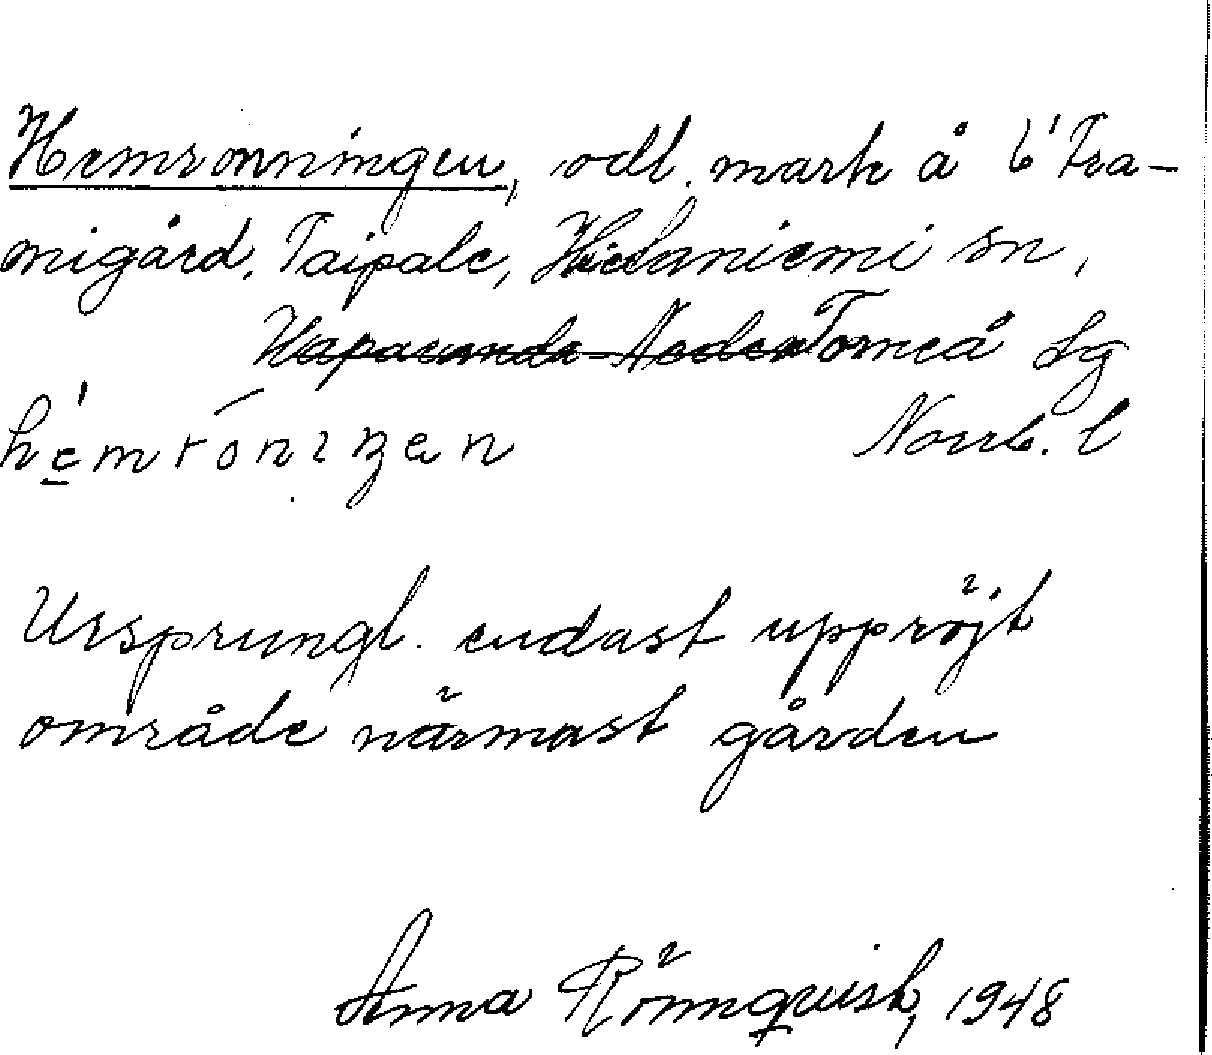 Hemronningen, odl. mark å 6' Fra-
migård, Taipale, Hietaniemi sn,
Haparanda-Neder Torneå Lg
hemronizen Norrb. l
Ursprungl. endast uppröjt
område närmast gården
Anna Rönnquist, 1948